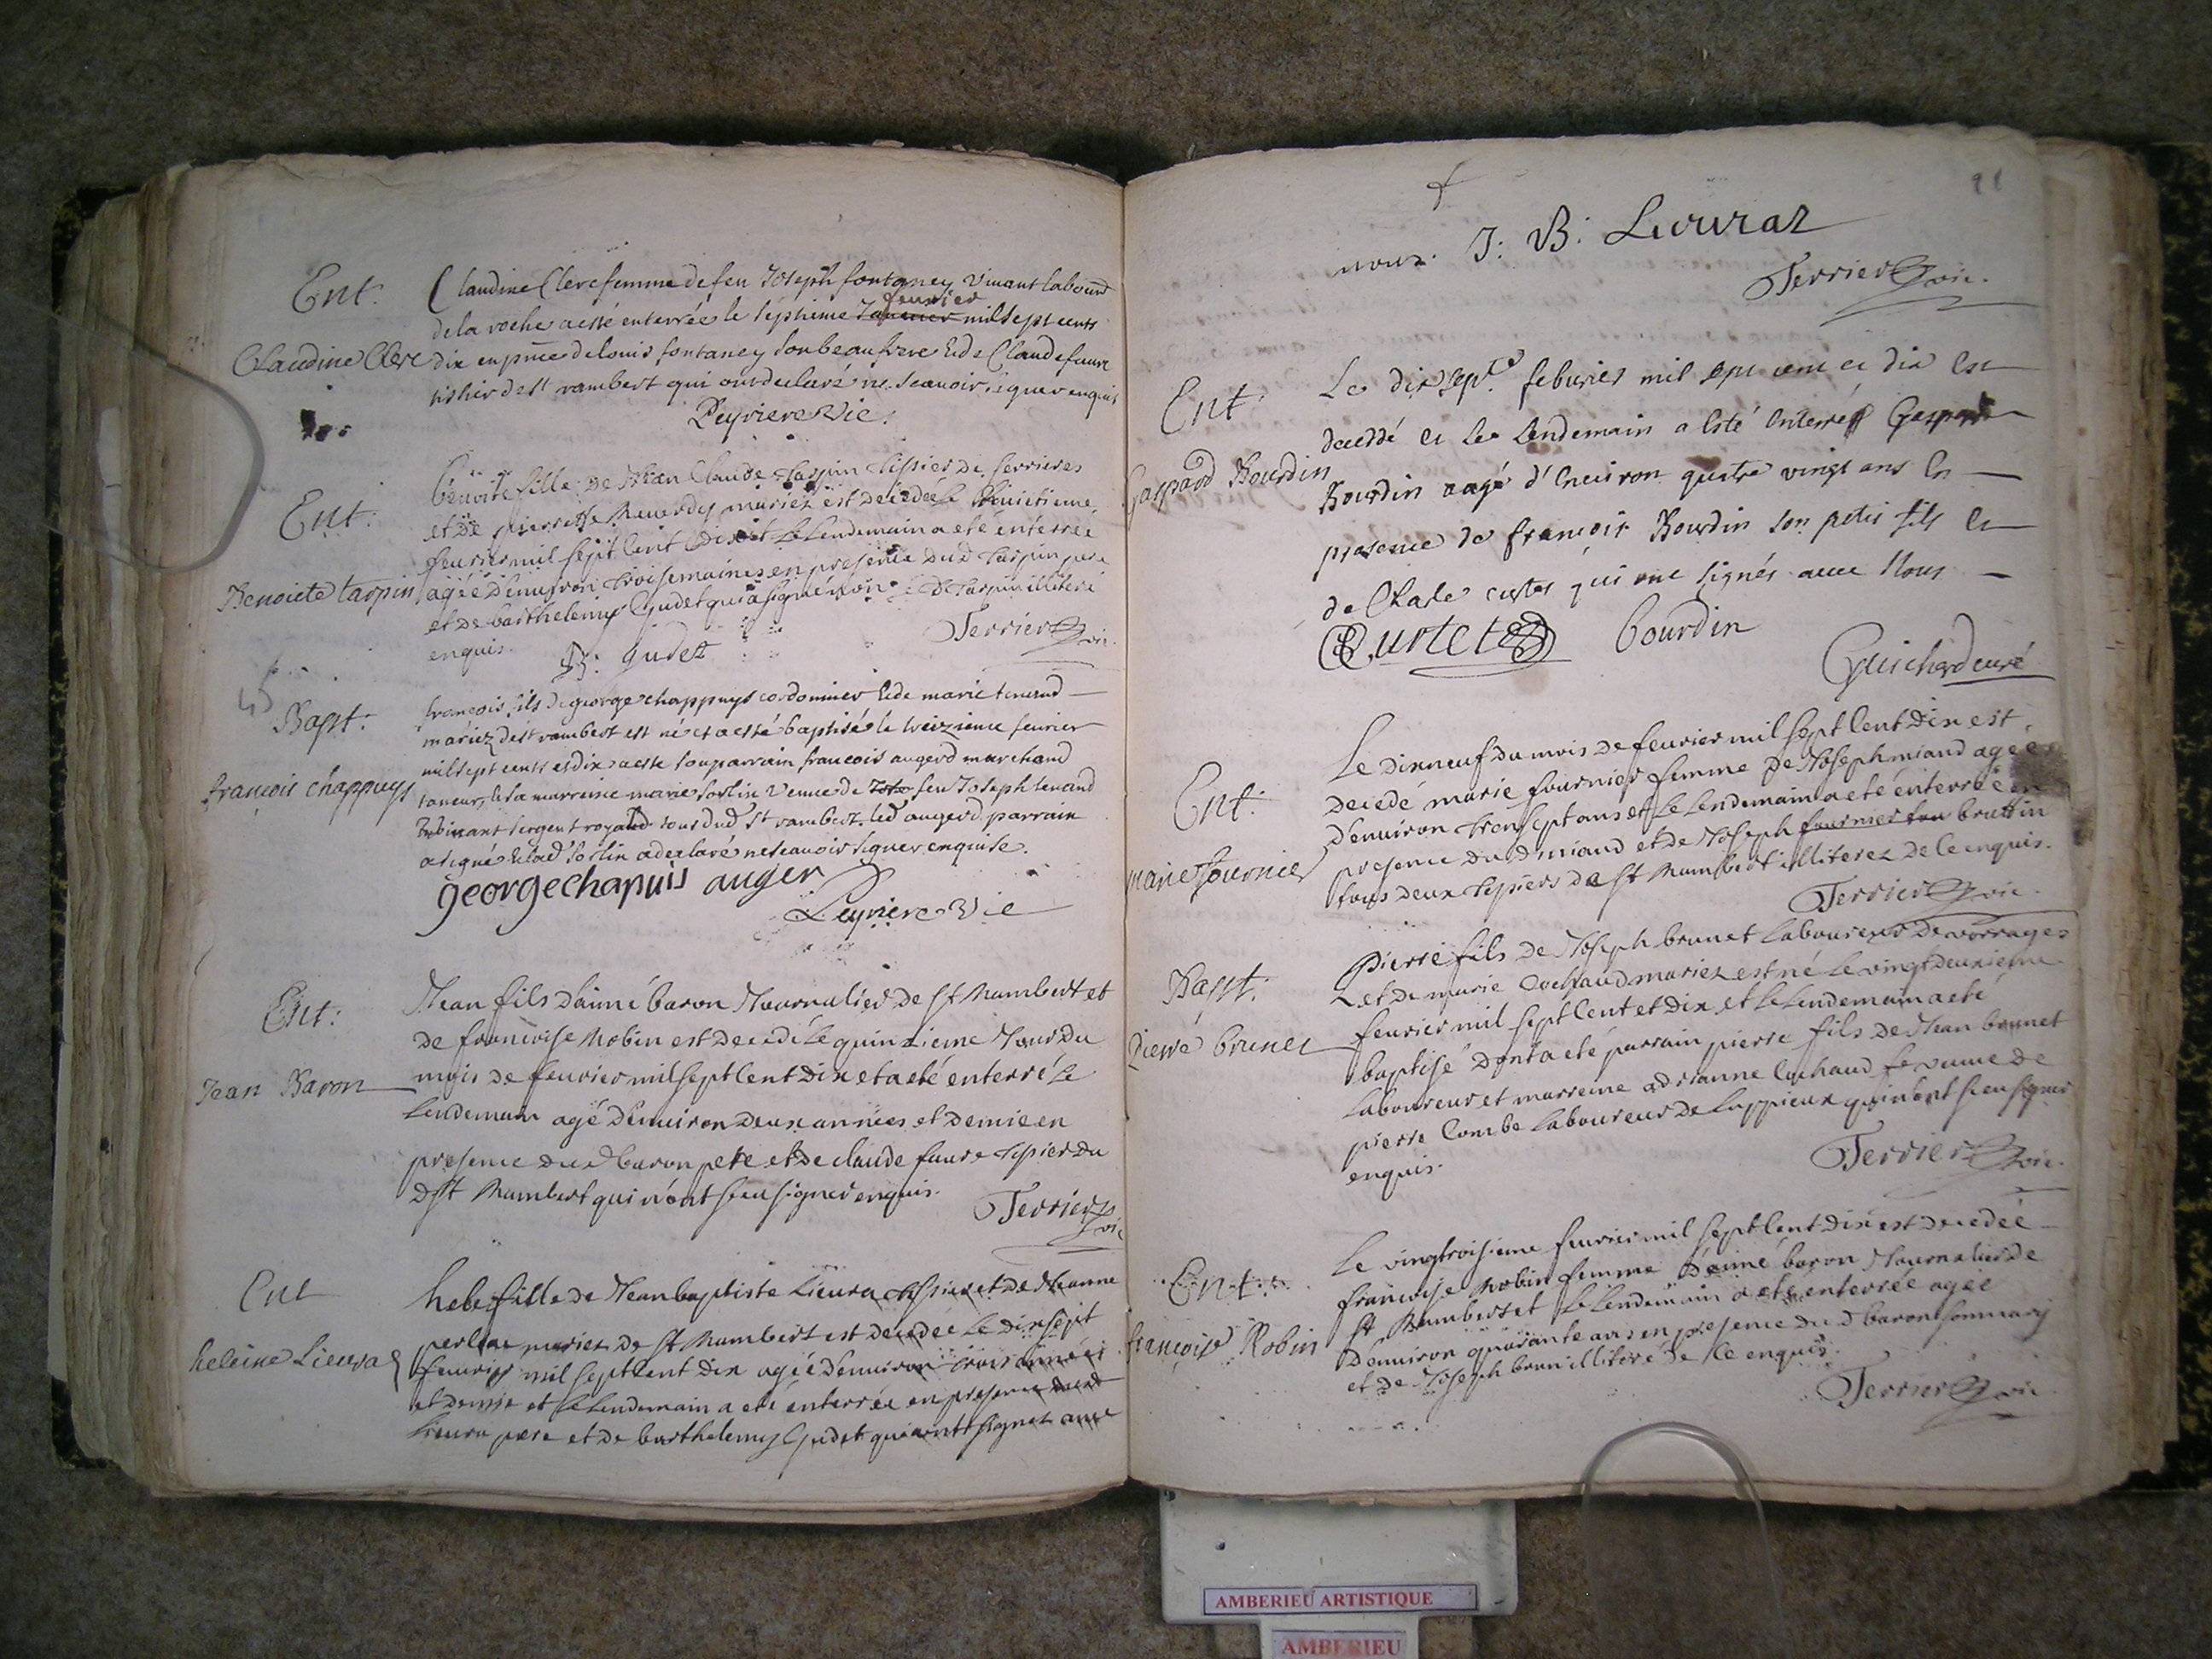 Ent.
Claudine Clerc
Claudine Clerc femme de feu Joseph fontaney vivant labour
de la roche a esté enterrée le septième Janvier fevrier mil sept cents
dix en pnce de louis fontaney son beau frere et de Claude faure
tissier de st rambert qui ont declaré ne scavoir signer enquis
Peyriere Vic.
Ent.
Benoicte tarpin
benoite fille de Jean Claude tarpin tissier de serrieres
et de pierrette mariez est decedée le huictieme
feurier mil sept cent dix et le lendemain a eté enterrée
agée d'enuiron trois semaines en presence dud tarpin pere
et de barthelemy Gudet qui a signé non led tarpin illiteré
enquis. B: gudet
Terrier vic.
Bapt.
françois chappuys
francois fils de george chappuys cordonnier et de marie tenand
mariez de st rambert est né et a esté baptisé le treizieme feurier
mil sept cents et dix a esté son parrain francois augerd marchand
taneur, et sa marreine marie sorlin veuve de feu Joseph tenand
vivant sergent royal dud st rambert. led augerd parrain
a signé et lad sorlin a declaré ne scavoir signer enquise.
george chapuis auger
Peyriere Vic
Ent:
Jean Baron
Jean fils d'aimé baron Journalier de st Rambert et
de francoise Robin est decedé le quinzieme Jour du
mois de feurier mil sept cent dix et a eté enterré le
lendemain agé d'enuiron deux années et demie en
presence dud baron pere et de claude faure tissier du
d st Rambert qui n'ont sceu signer enquis.
Terrier vic
Ent
heleine Lieura
helene fille de Jean baptiste Lieura tissier et de Jeanne
mariez de st Rambert est decedée le dix sept
feurier mil sept cent dix agée d'enuiron trois années
et demie et le lendemain a eté enterrée en presence dud
Lieura pere et de barthelemy Gudet qui ont signez avec
91
nous. J: B: Liouraz
Terrier vic.
Ent.
Gaspard Bourdin
Le dix sept.e feburier mil sept cent et dix est
decedé et le lendemain a esté enterré Gaspard
Bourdin aagé d'enuiron quatre vingt ans en
presence de francois Bourdin son petit fils et
de Charle curtet qui ont signés avec Nous
Curtet bourdin
Guichard curé
Ent.
marie fournier
Le dixneuf du mois de feurier mil sept cent dix est
decedé marie fournier femme de Joseph miand agée
d'enuiron trensept ans et le lendemain a eté enterrée en
presence dud miand et de Joseph fournier bruttin
tous deux tissiers de st Rambert illiterez de ce enquis.
Terrier vic.
Bapt.
pierre brunet
Pierre fils de Joseph brunet laboureur de vorrages
et de marie Cochaud mariez est né le vingt deuxieme
feurier mil sept cent et dix et le lendemain a eté
baptisé dont a eté parrain pierre fils de Jean brunet
laboureur et marreine adrianne Cochaud femme de
pierre Combe laboureur de Luppieux qui n'ont sceu signer
enquis.
Terrier vic.
Ent.
françoise Robin
Le vingtroisieme feurier mil sept cent dix est decedée
francoise Robin femme d'aimé baron Journalier de
st Rambert et le lendemain a eté enterrée agée
d'enuiron quarante ans en presence dud baron son mary
et de Joseph brun illiteré de ce enquis.
Terrier vic
AMBERIEU ARTISTIQUE
AMBERIEU